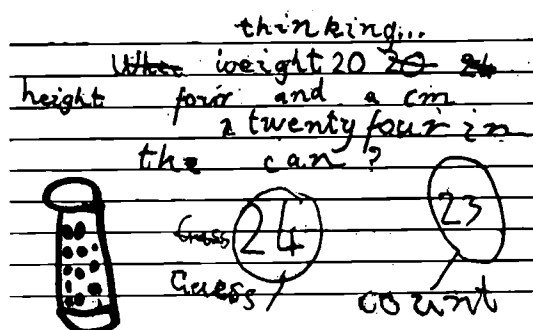 thinking...
weight 20 20 24
height four and a cm
twenty four in
the can?
Guess 24 23
Guess count